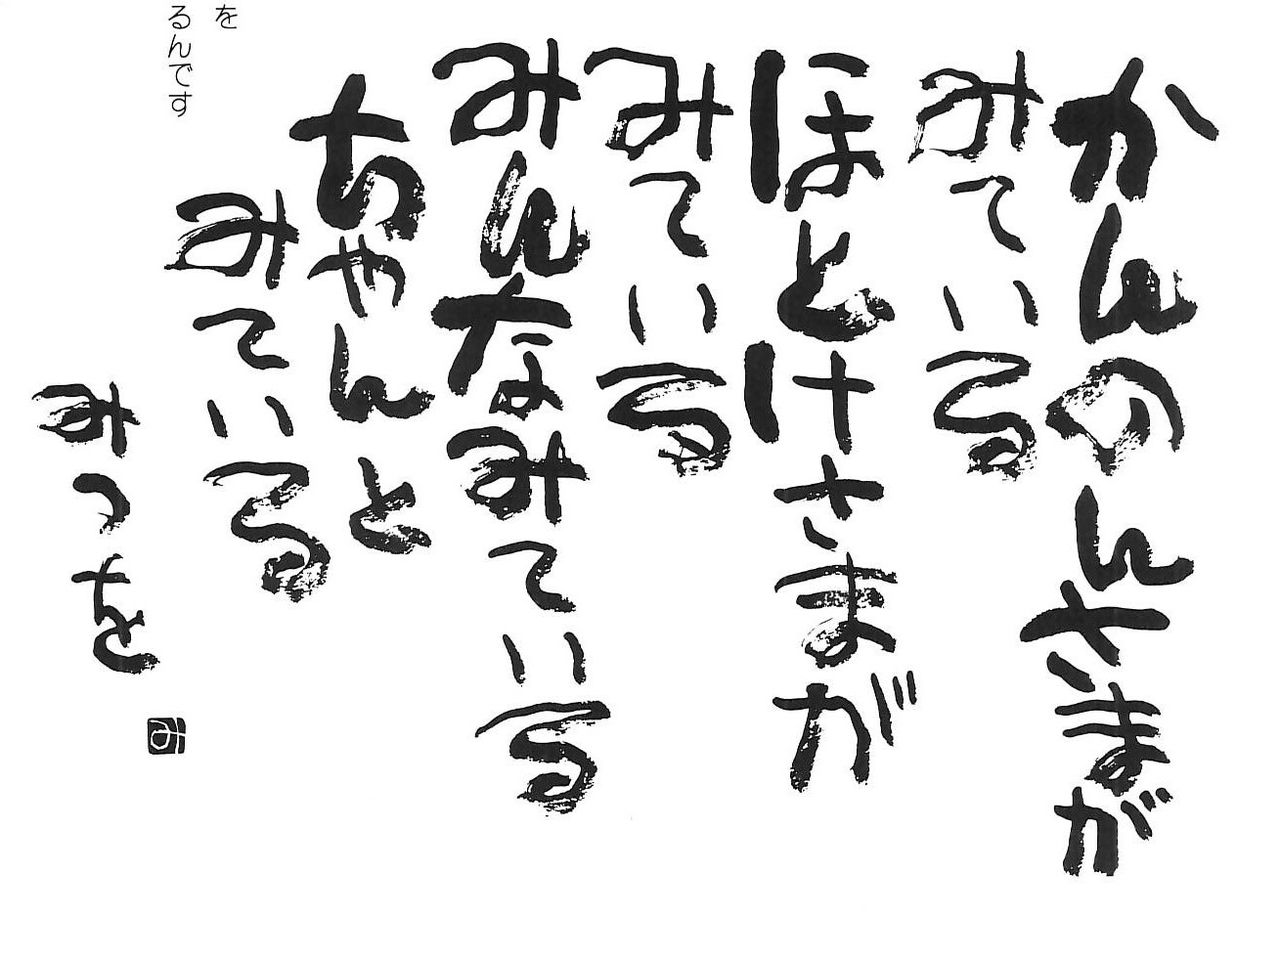 かんのんさまが
みている
ほとけさまが
みている
みんなみている
ちゃんと
みている
みつを
み
を
るんです